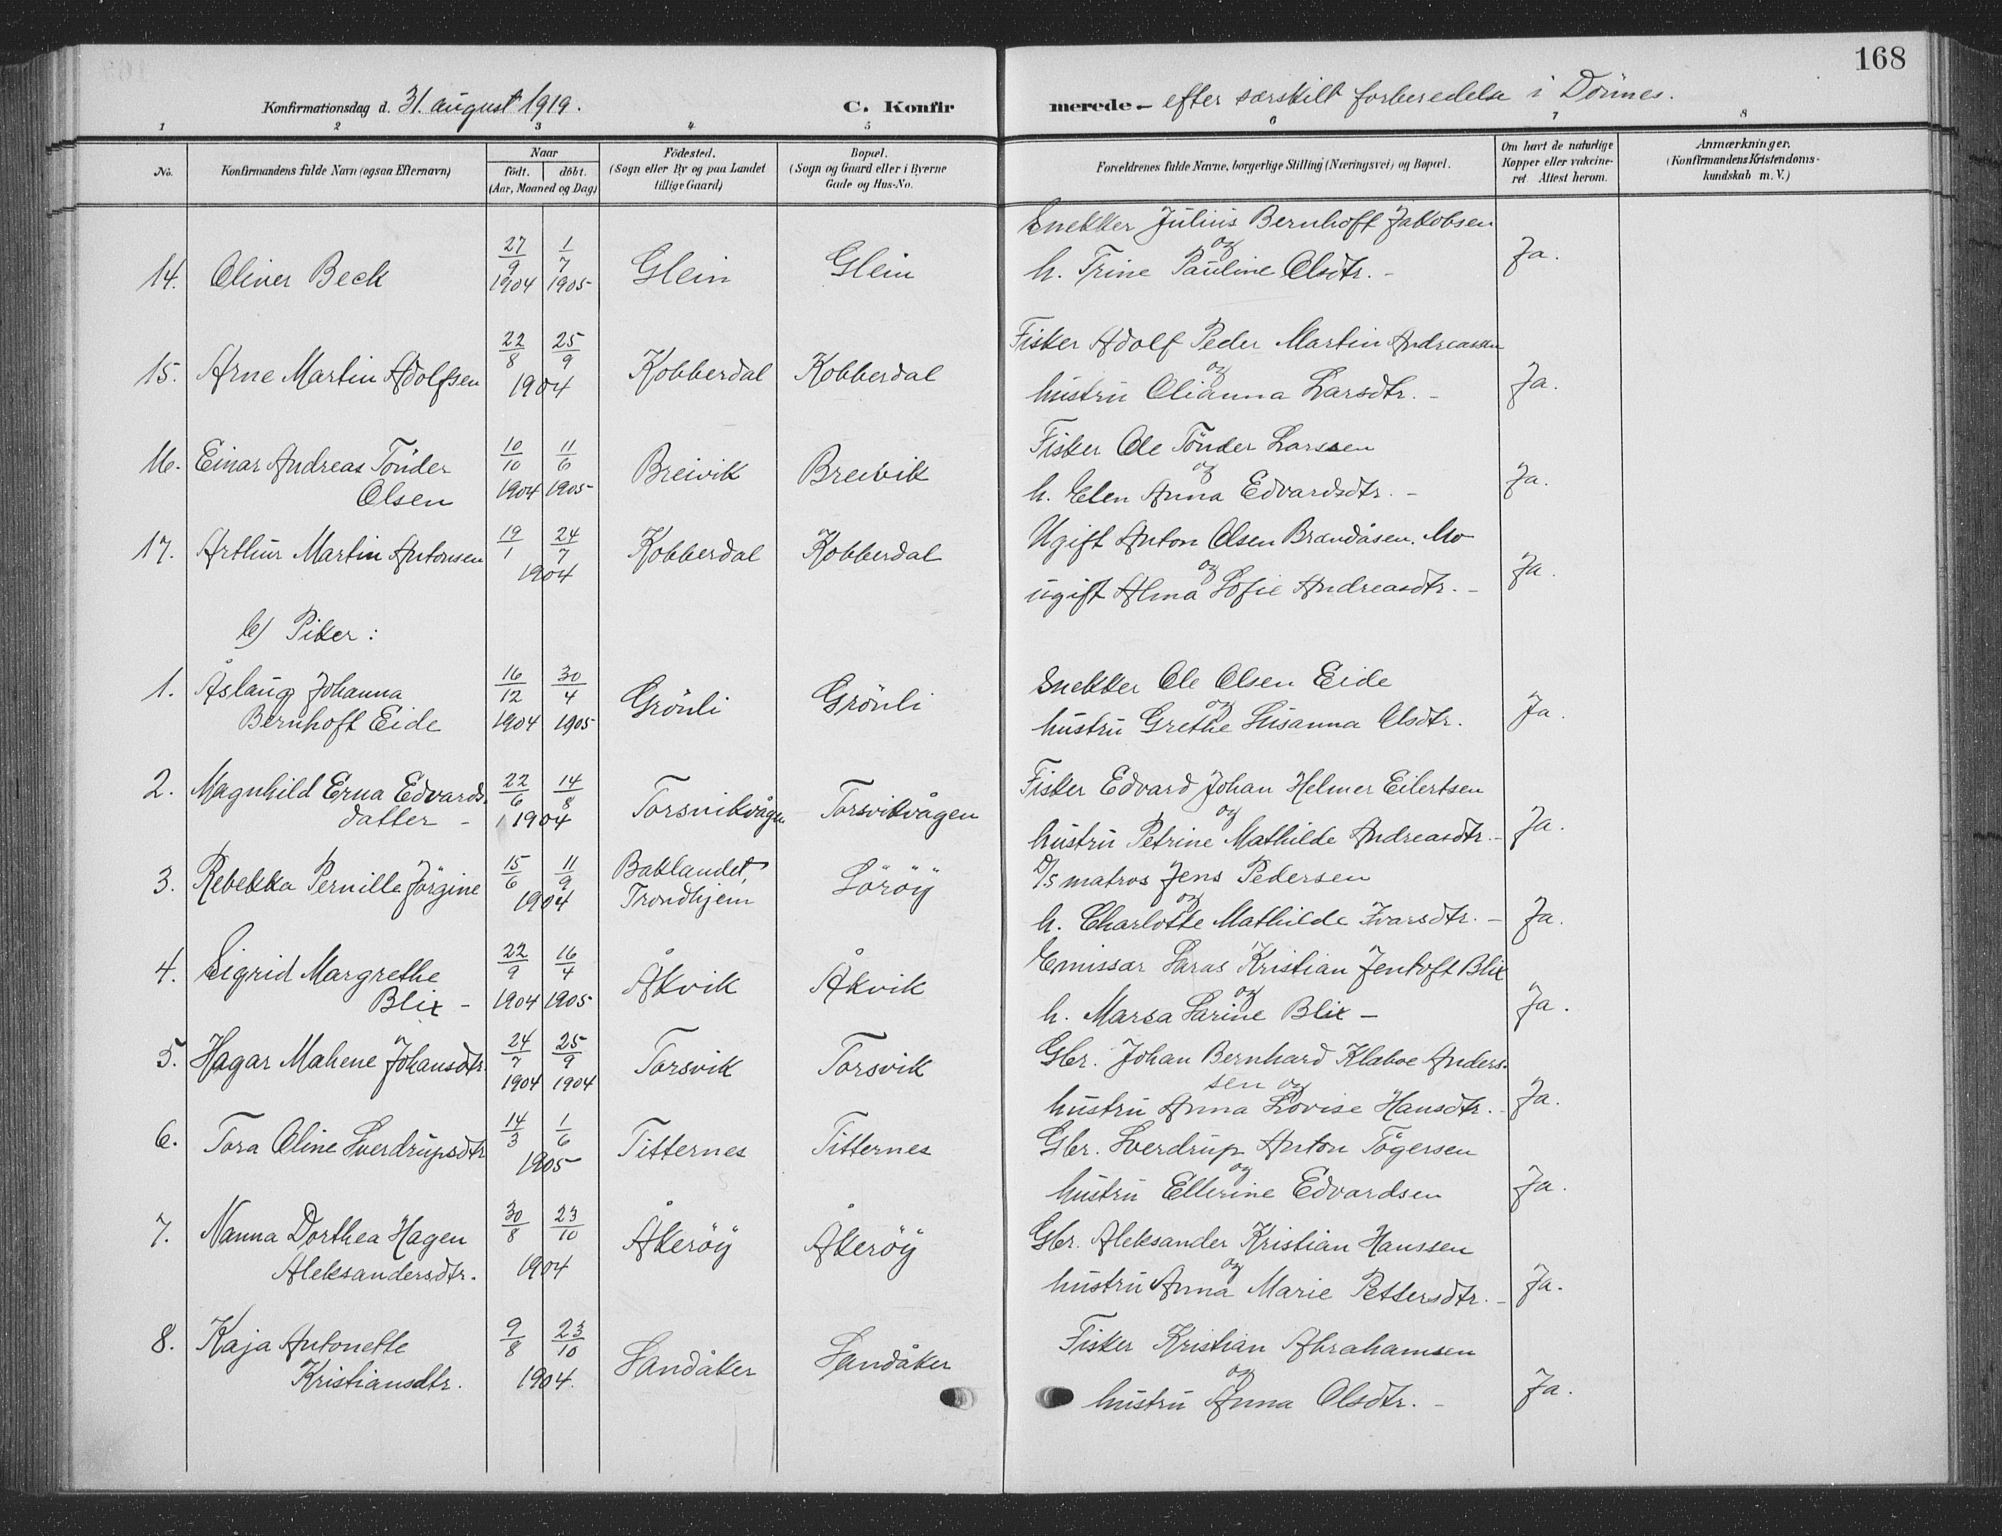 168
Konfirmationsdag d. 31. august 1919. C. Konfirmerede – efter særskilt forberedelse i Dönnes.
1 2 3 4 5 6 7 8
No. Konfirmandens fulde Navn (ogsaa Efternavn) Naar födt. döbt. (Aar, Maaned og Dag) Födested. (Sogn eller By og paa Landet tillige Gaard) Bopæl. (Sogn og Gaard eller i Byerne Gade og Hus-No. Forældrenes fulde Navne, borgerlige Stilling (Næringsvei) og Bopæl. Om havt de naturlige Kopper eller vakcineret. Attest herom. Anmærkninger. (Konfirmandens Kristendomskundskab m. V.)
14. Oliver Beck 27/9 1904 1/7 1905 Glein Glein Snekker Julius Bernhoft Jakobsen og
h. Trine Pauline Olsdtr. – Ja.
15. Arne Martin Adolfsen 22/8 25/9 1904 Kobberdal Kobberdal Fisker Adolf Peder Martin Andreassen og
hustru Olianna Larsdtr. – Ja.
16. Einar Andreas Tönder
Olsen 10/10 1904 11/6 1905 Breivik Breivik Fisker Ole Tönder Larssen og
h. Elen Anna Edvardsdtr. – Ja.
17. Arthur Martin Antonsen 19/1 24/7 1904 Kobberdal Kobberdal Ugift Anton Olsen Brandåsen, Mo og
ugift Alma Sofie Andreasdtr. – Ja.
b) Piker:
1. Åslaug Johanna
Bernhoft Eide 16/12 1904 30/4 1905 Grönli Grönli Snekker Ole Olsen Eide og
hustru Grethe Susanna Olsdtr. Ja.
2. Magnhild Erna Edvards-
datter – 22/6 14/8 1904 Torsvikvågen Torsvikvågen Fisker Edvard Johan Helmer Eilertsen og
hustru Petrine Mathilde Andreasdtr. – Ja.
3. Rebekka Pernille Jörgine 15/6 11/9 1904 Baklandet,
Trondhjem Söröy D/s matros Jens Pedersen og
h. Charlotte Mathilde Ivarsdtr. – Ja.
4. Sigrid Margrethe
Blix – 22/9 1904 16/4 1905 Åkvik Åkvik Emissær Laras Kristian Jentoft Blix og
h. Marsa Sarine Blix – Ja.
5. Hagar Mahene Johansdtr. 24/7 1904 25/9 1904 Torsvik Torsvik Gbr. Johan Bernhard Klaboe Anders-
sen og
hustru Anna Lovise Hansdtr. – Ja.
6. Tora Oline Sverdrupsdtr 14/3 1/6 1905 Titternes Titternes Gbr. Sverdrup Anton Tögersen og
hustru Ellerine Edvardsen Ja.
7. Nanna Dorthea Hagen
Aleksandersdtr. 30/8 23/10 1904 Åkeröy Åkeröy Gbr. Aleksander Kristian Hanssen og
hustru Anna Marie Pettersdtr. – Ja.
8. Kaja Antonette
Kristiansdtr. 9/8 23/10 1904. Sandåker Sandåker Fisker Kristian Abrahamsen og
hustru Anna Olsdtr. – Ja.